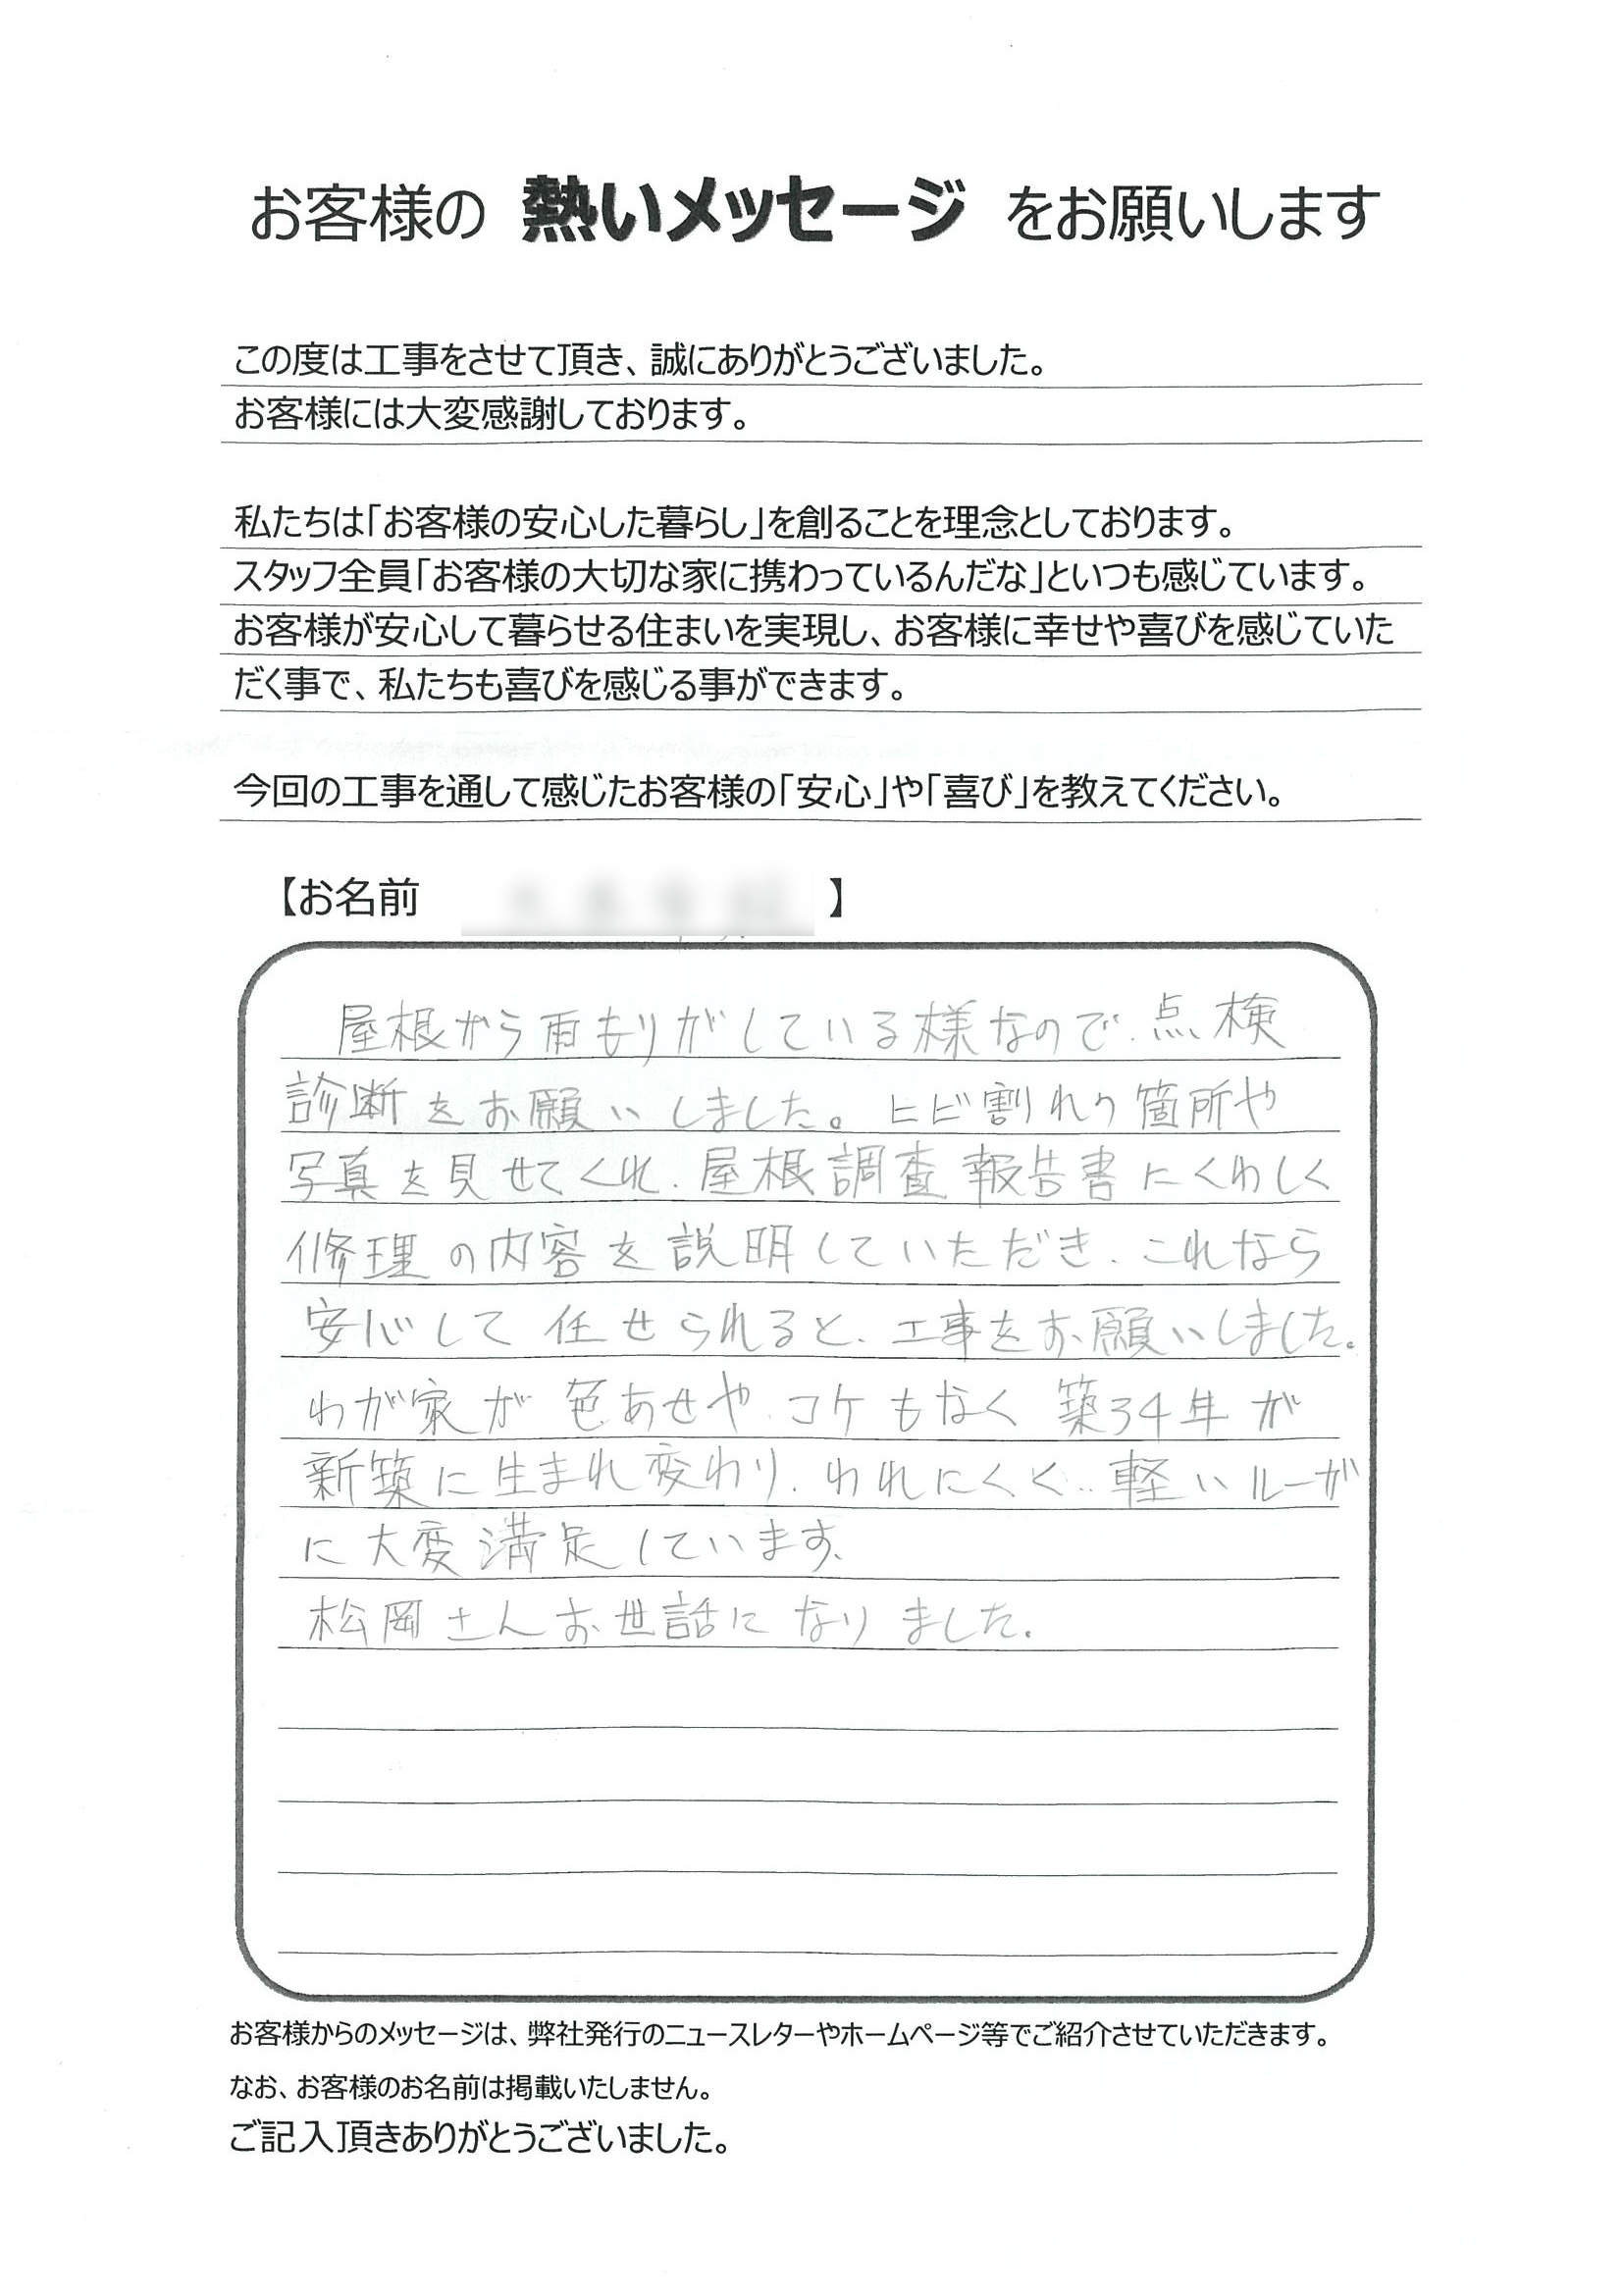 お客様の 熱いメッセージ をお願いします
この度は工事をさせて頂き、誠にありがとうございました。
お客様には大変感謝しております。
私たちは「お客様の安心した暮らし」を創ることを理念としております。
スタッフ全員「お客様の大切な家に携わっているんだな」といつも感じています。
お客様が安心して暮らせる住まいを実現し、お客様に幸せや喜びを感じていた
だく事で、私たちも喜びを感じる事ができます。
今回の工事を通して感じたお客様の「安心」や「喜び」を教えてください。
【お名前 】
屋根から雨もりがしている様なので、点検
診断をお願いしました。ヒビ割れの箇所や
写真を見せてくれ、屋根調査報告書にくわしく
修理の内容を説明していただき、これなら
安心して任せられると、工事をお願いしました。
わが家が色あせや、コケもなく築34年が
新築に生まれ変わり、われにくく、軽いルーガ
に大変満足しています。
松岡さんお世話になりました。
お客様からのメッセージは、弊社発行のニュースレターやホームページ等でご紹介させていただきます。
なお、お客様のお名前は掲載いたしません。
ご記入頂きありがとうございました。